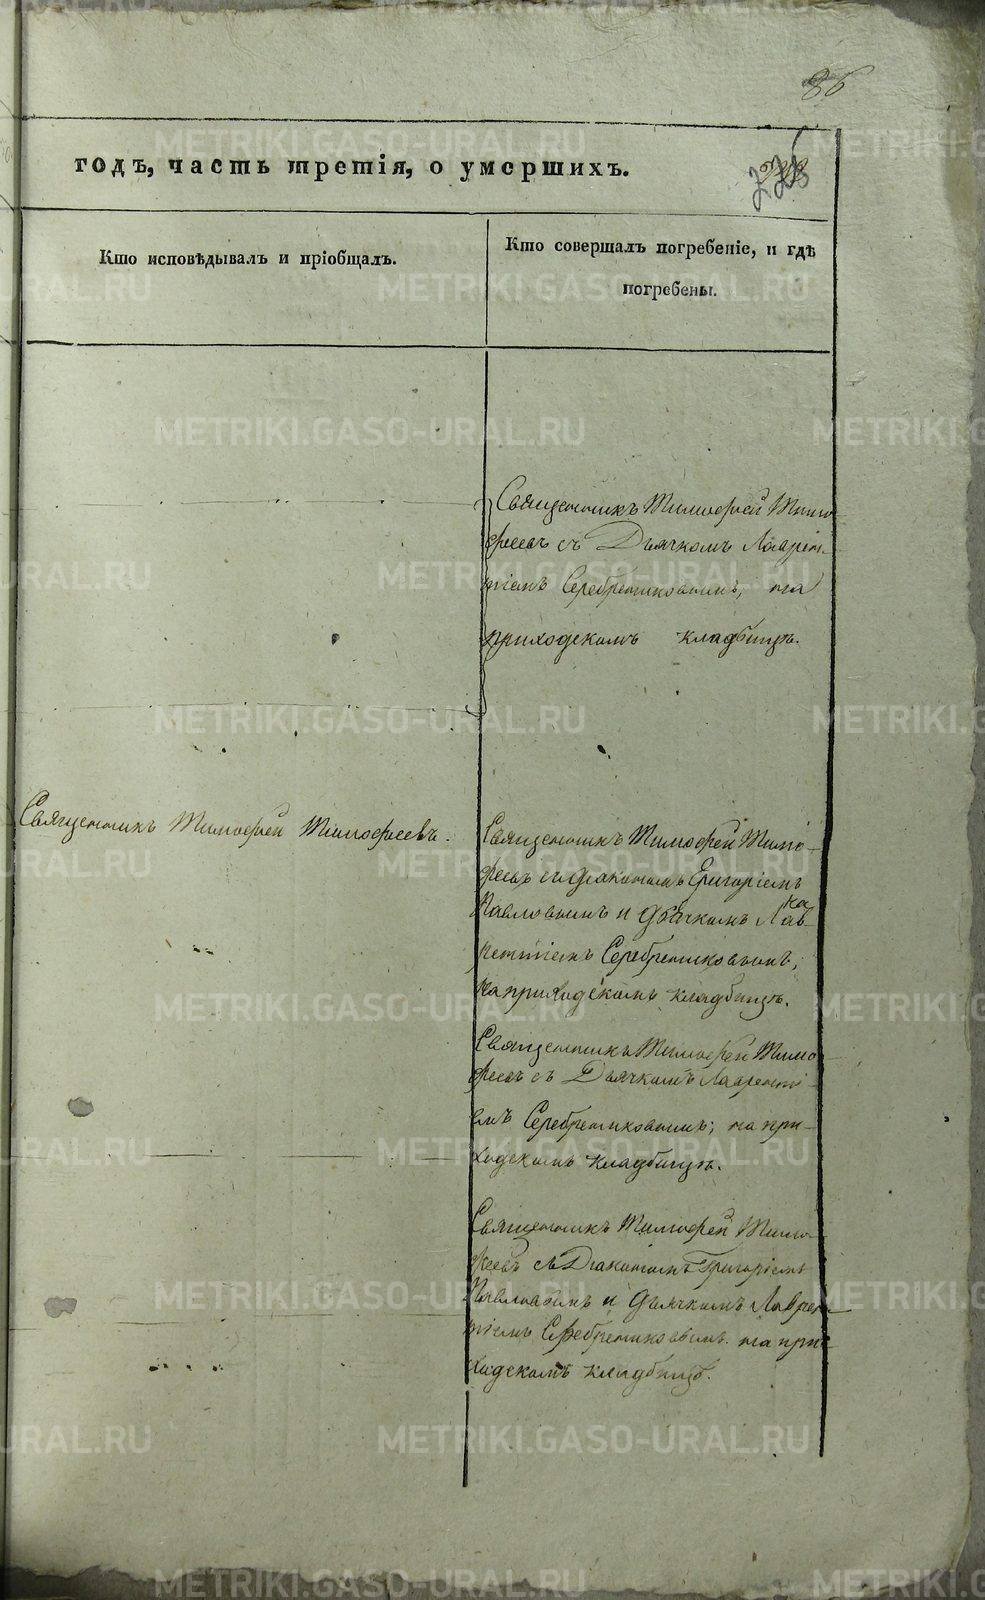 86
годъ, часть третія, о умершихъ.
Кто исповѣдывалъ и пріобщалъ.
Кто совершалъ погребеніе, и гдѣ
погребены.
Священникъ Тимофей Тимо
феевъ съ Дьячкомъ Лаврен-
тіемъ Серебренниковымъ, на
приходскомъ кладбищѣ.
Священникъ Тимофей Тимофеевъ.
Священникъ Тимофей Тимо-
феевъ съ діакономъ Григоріемъ
Павловымъ и дьячкомъ Лав-
рентіемъ Серебренниковымъ,
на приходскомъ кладбищѣ.
Священникъ Тимофей Тимо-
феевъ съ Дьячкомъ Лавренті-
емъ Серебренниковымъ; на при-
ходскомъ кладбищѣ.
Священникъ Тимофей Тимо-
феевъ съ Діакономъ Григоріемъ
Павловымъ и дьячкомъ Лаврен-
тіемъ Серебренниковымъ на при-
ходскомъ кладбищѣ.
METRIKI.GASO-URAL.RU